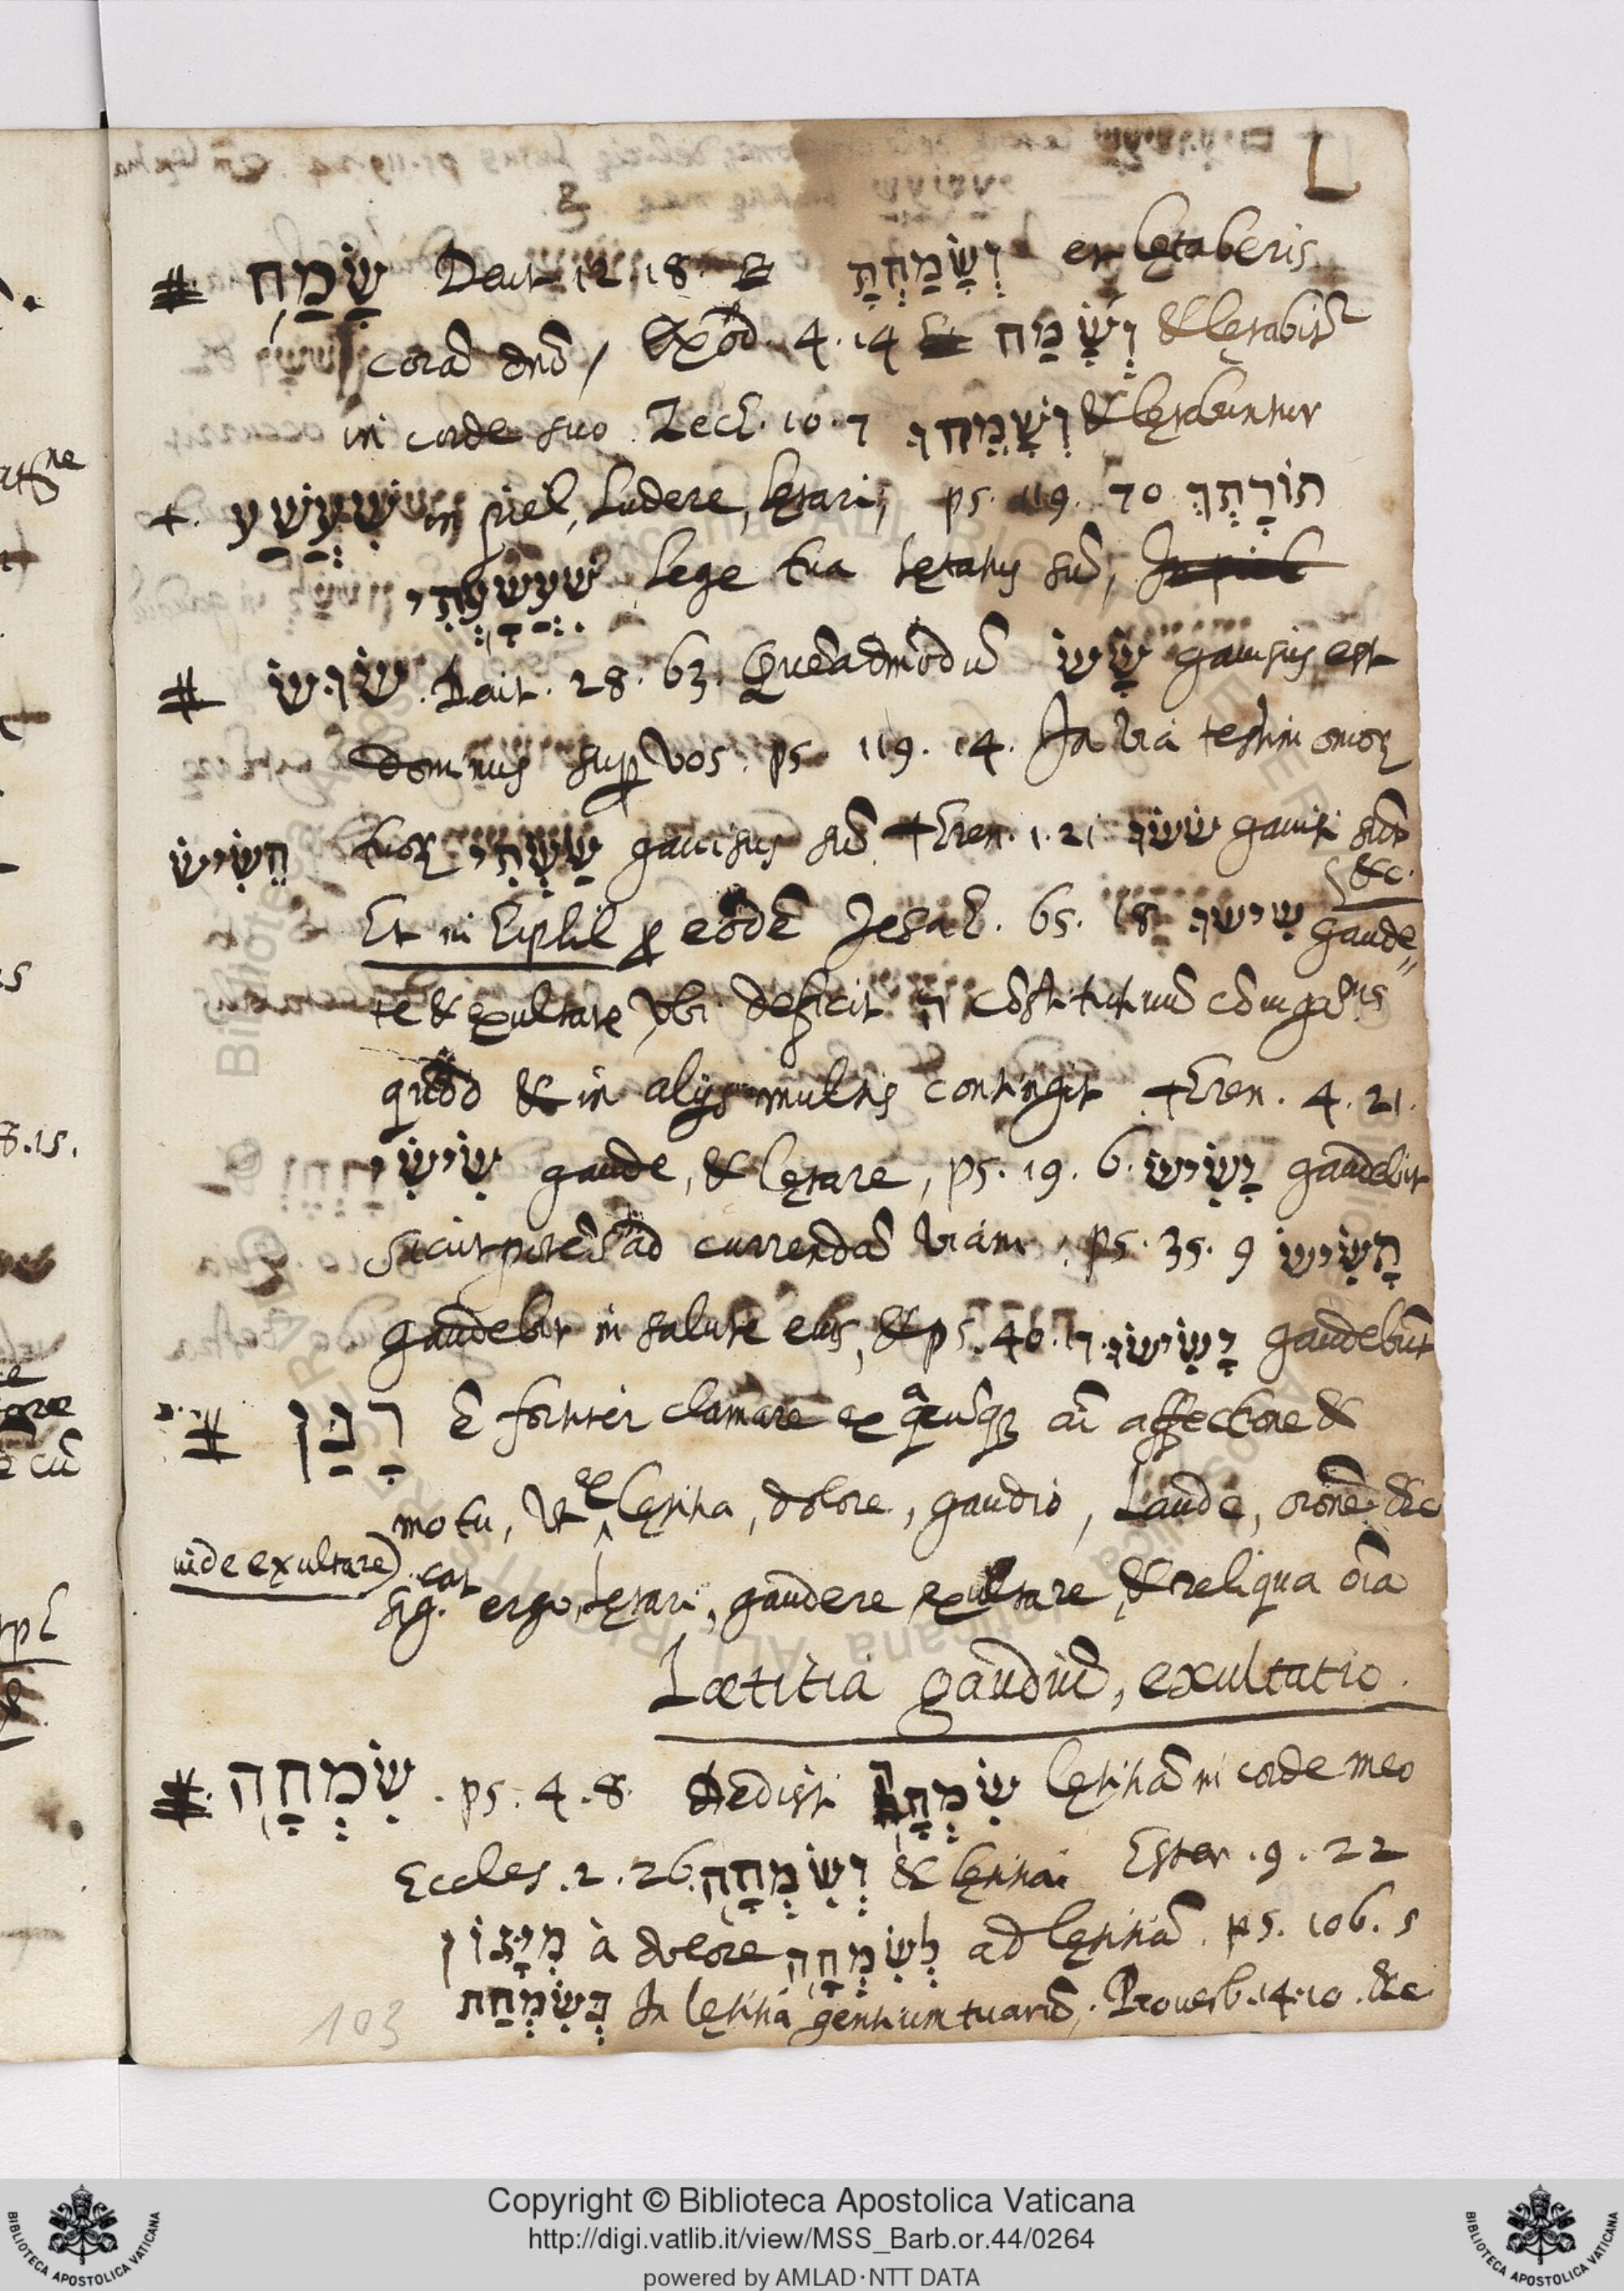 L
# שָׂמַח Deut 12.18. וְשָׂמַחְתָּ et lętaberis
corā dnō / Exod. 4.14 וְשָׂמַח & lętabitr
in corde suo. Zech. 10.7 וְשָׂמְחוּ & lętabuntur
+. שִׁעֲשַׁע in piel, Ludere, lętari, ps. 119. 70 תוֹרָתְךָ
שִׁעֲשָׁעְתִּי lege tua lętatus sū,
# שׂוּשׂ. Deut. 28. 63. Quēadmodū שָׂשׂ gauisus est
dominus sup vos. ps 119. 14. In via testimonioꝝ
tuoꝝ שַׂשְׂתִּי gauisus sū. +Tren. 1. 21 שָׂשׂוּ gauisi sūt
&c.
הֵשִׂישׂ
Et in Hiphil ꝓ eodē Jesai. 65. 18 שִׂישׂוּ gaude„
te & exultate, vbi deficit ה
quod & in alijs multis contingit +Tren. 4. 21.
שִׂישִׂי gaude, & lętare, ps. 19. 6. יָשִׂישׂ gaudebit
sicut potēs ad currendā viam. ps. 35. 9 תָּשִׂישׂ
gaudebit in salute eius, & ps. 40. 17. יָשִׂישׂוּ gaudebūt
# רָנַן ē fortiter clamare ex affectione &
motu, vt lętitia, dolore, gaudio, Laude, &c
uide exultare)
sig.cat ergo, lętari, gaudere, exultare, & reliqua oīa
Lætitia gaudiū, exultatio.
#. שִׂמְחָה. ps. 4. 8. Dedisti שִׂמְחָה lętitiā in corde meo
Eccles. 2. 26. וְשִׂמְחָה & lętitia Ester. 9. 22
מִיָּגוֹן à dolore לְשִׂמְחָה ad lętitiā. ps. 106. 5
בְּשִׂמְחַת In lętitia gentium tuarū, Prouerb. 14. 10. &c
103
Copyright © Biblioteca Apostolica Vaticana
http://digi.vatlib.it/view/MSS_Barb.or.44/0264
powered by AMLAD·NTT DATA
BIBLIOTECA APOSTOLICA VATICANA
BIBLIOTECA APOSTOLICA VATICANA